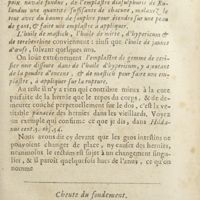 poix navale fondue, de l'emplastre diaphulphuris de Ru-
landus une quantité suffisante de chacun, malaxez le
tout avec du baume de soulphre pour étendre sur une peau
de gans, & faire une emplastre à appliquer.
L'huile de mastich, l'huile de mirte, d'hypericum &
de terebenthine conviennent: ainsi que l'huile de jaunes
d'œufs, suivant quelques uns.
On loüe extrémement l'emplastre de gomme de ceri-
sier noir dissoute dans de l'huile d'hypericum, y ajoutant
de la poudre d'encens, & de mastich pour faire une em-
plastre, à appliquer sur la rupture.
Au reste il n'y a rien qui contribue mieux à la cure
parfaite de la hernie que le repos du corps, & de de-
meurer couché perpetuellement sur le dos, ce qui est la
veritable panacée des hernies dans les vieillards. Voyez
un exemple qui confirme ce que je dis, dans Hilda-
nus cent. 5. obs. 54.
Nous avons dit cy devant que les gros intestins ne
pouvoient changer de place, ny causer des hernies,
neanmoins le rectum est sujet à un changement singu-
lier, & il paroît quelquefois hors de l'anus, ce qu'on
nomme
Cheute du fondement.